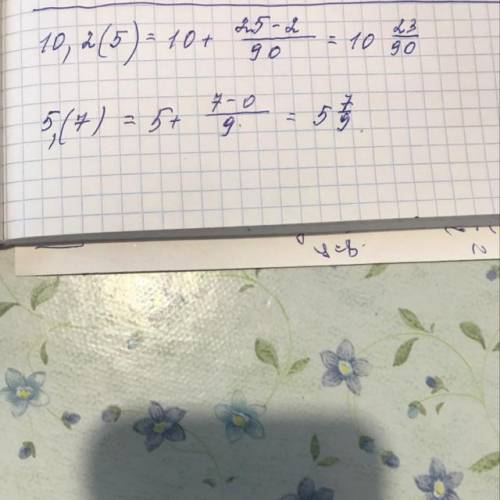 10,2(5) = 10 + \frac{25-2}{90} = 10 \frac{23}{90}
5,(7) = 5 + \frac{7-0}{9} = 5 \frac{7}{9}.